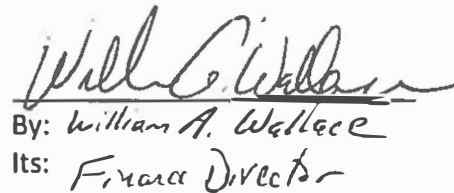 William A. Wallace
By: William A. Wallace
Its: Finance Director